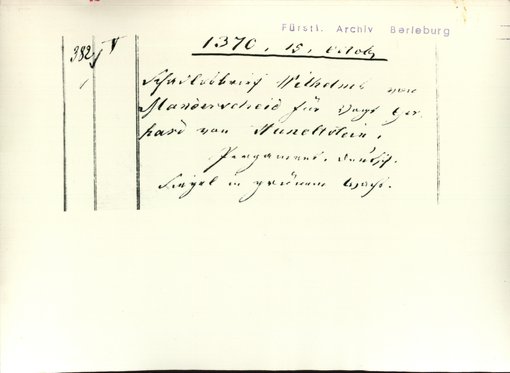 Fürstl. Archiv Berleburg
1370, 15. Octob
382 V
Schadlosbrief Wilhelms von
Manderscheid für Vogt Ger-
hard von Hunoltstein.
Pergament, deutsch.
Siegel in grünem Wachs.